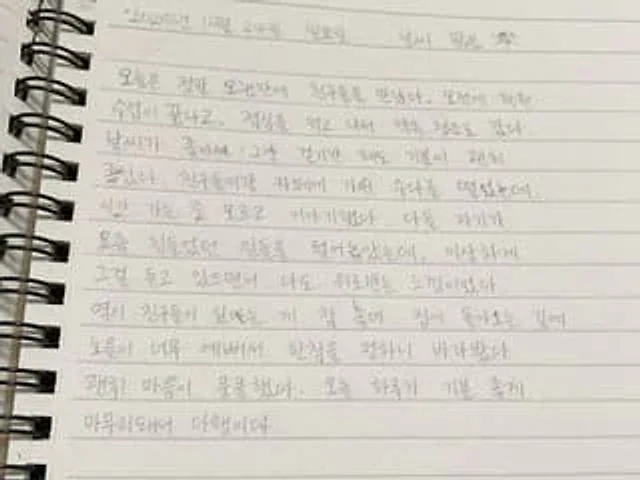 오늘은 정말 오랜만에 친구들을 만났다. 오전에
수업이 끝나고, 점심을 먹고 나서 갔다
날씨가 좋아서 그냥 걷기만 해도 기분이 괜히
좋았다 친구들이랑 카페에 가서 수다를 떨었는데,
시간 가는 줄 모르고 이야기했다 다들 자기가
요즘 힘들었던 일들을 털어놓았는데, 이상하게
그걸 듣고 있으면서 나도 위로받는 느낌이었다
역시 친구들이 있다는 게 참 좋다 집에 돌아오는 길에
노을이 너무 예뻐서 한참을 멍하니 바라봤다
괜히 마음이 뭉클했다. 오늘 하루가 기분 좋게
마무리돼서 다행이다